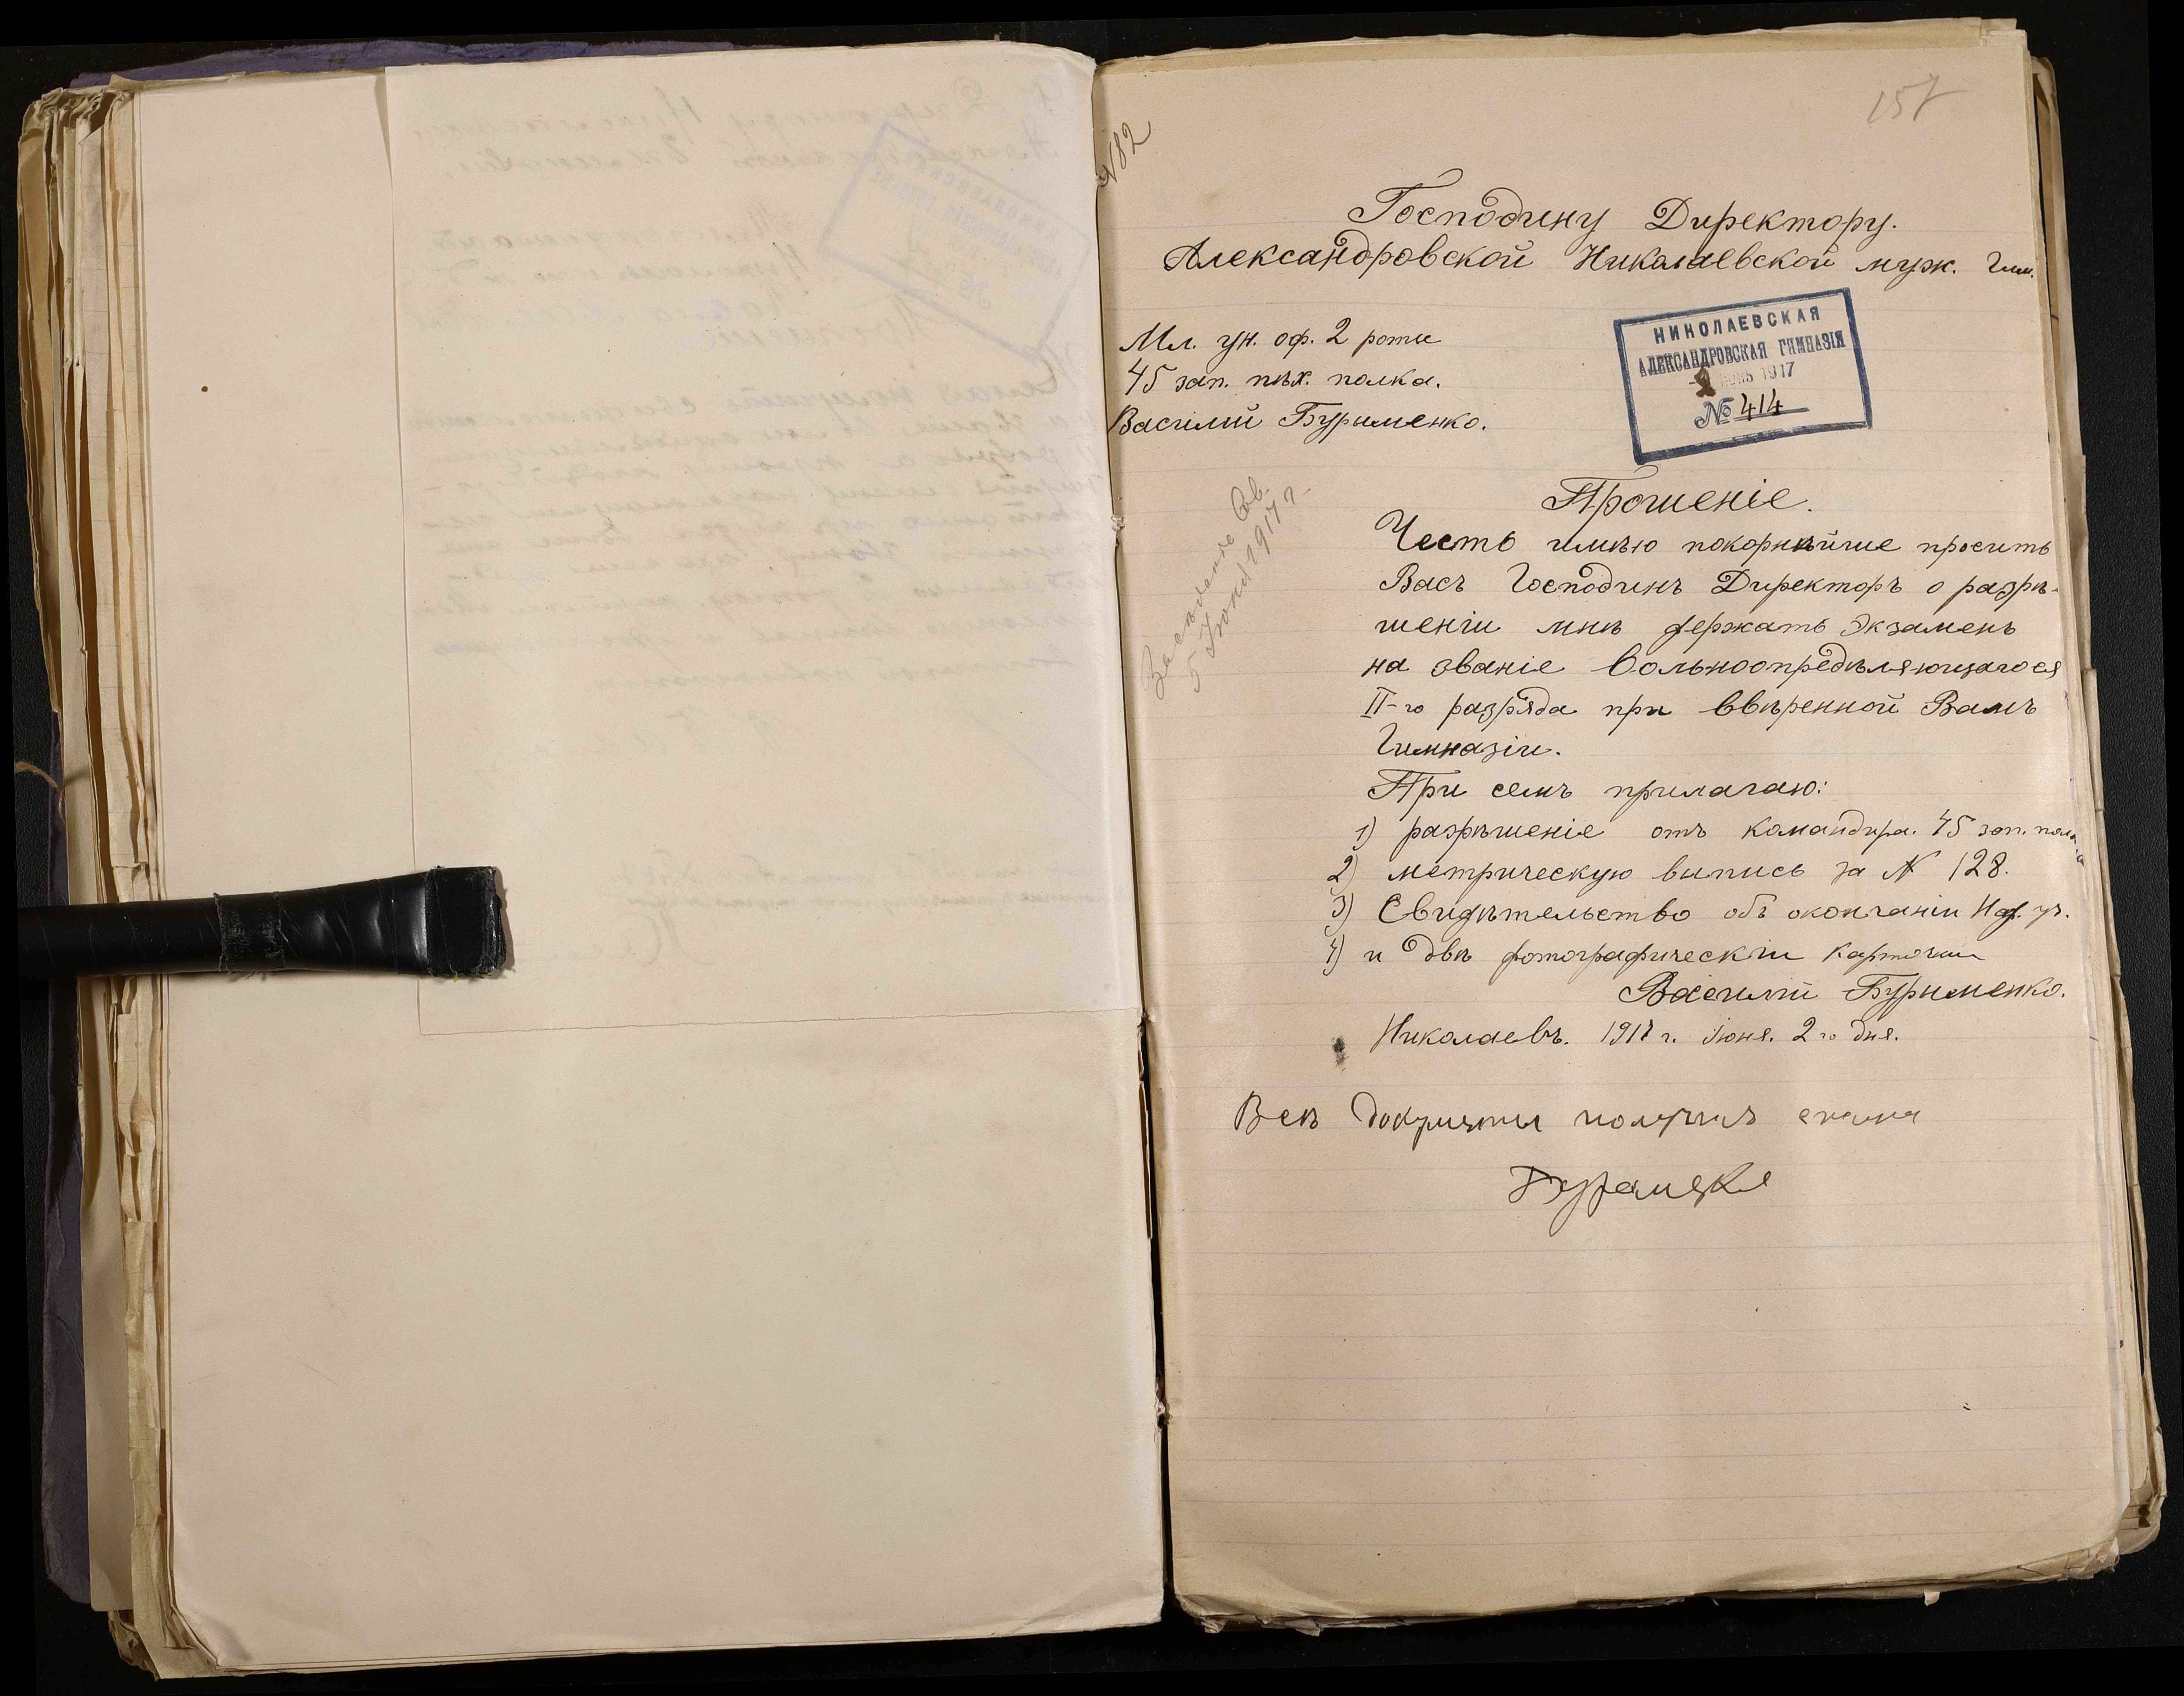 157
N 82
Господину Директору.
Александровской Николаевской муж. Гим.
Мл. ун. оф. 2 роты
45 зап. пѣх. полка.
Василий Бурименко.
НИКОЛАЕВСКАЯ
АЛЕКСАНДРОВСКАЯ ГИМНАЗІЯ
-2 ИЮНЬ 1917
№ 414
Засѣданіе Сов.
5 Іюня 1917 г.
Прошеніе.
Честь имѣю покорнѣйше просить
Васъ Господинъ Директоръ о разрѣ-
шеніи мнѣ держать Экзаменъ
на званіе вольноопредѣляющагося
II-го разряда при ввѣренной Вамъ
Гимназіи.
При семъ прилагаю:
1) разрѣшеніе отъ командира. 45 зап. полка
2) метрическую выпись за N 128.
3) Свидѣтельство объ окончаніи уч.
4) и двѣ фотографическіи карточки
Василий Бурименко.
Николаевъ. 1917 г. Июня. 2 го дня.
Всѣ документы получилъ